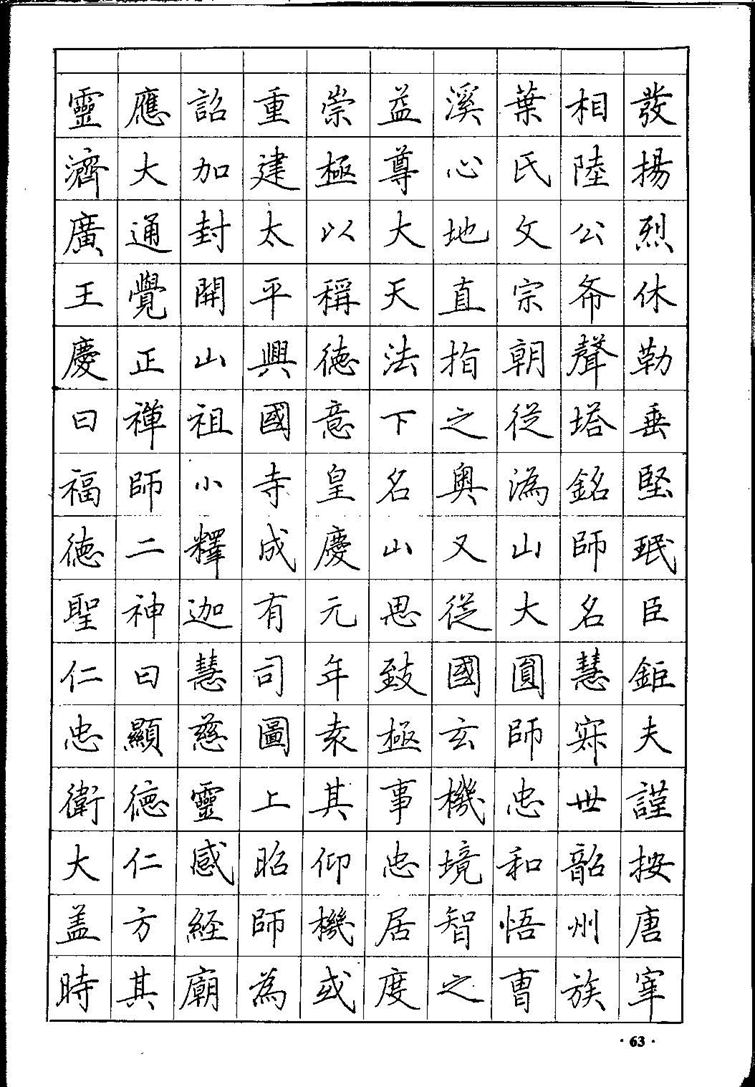 發揚烈休勒垂堅珉臣鉅夫謹按唐宰
相陸公希聲塔銘師名慧寂世韶州族
葉氏文宗朝從溈山大圓師忠和悟曹
溪心地直指之奧又從國玄機境智之
益尊大天法下名山思致極事忠居度
崇極以稱德意皇慶元年表其仰機或
重建太平興國寺成有司圖上昭師為
詔加封開山祖小釋迦慧慈靈感經廟
應大通覺正禪師二神曰顯德仁方其
靈濟廣王慶曰福德聖仁忠衛大蓋時
·63·